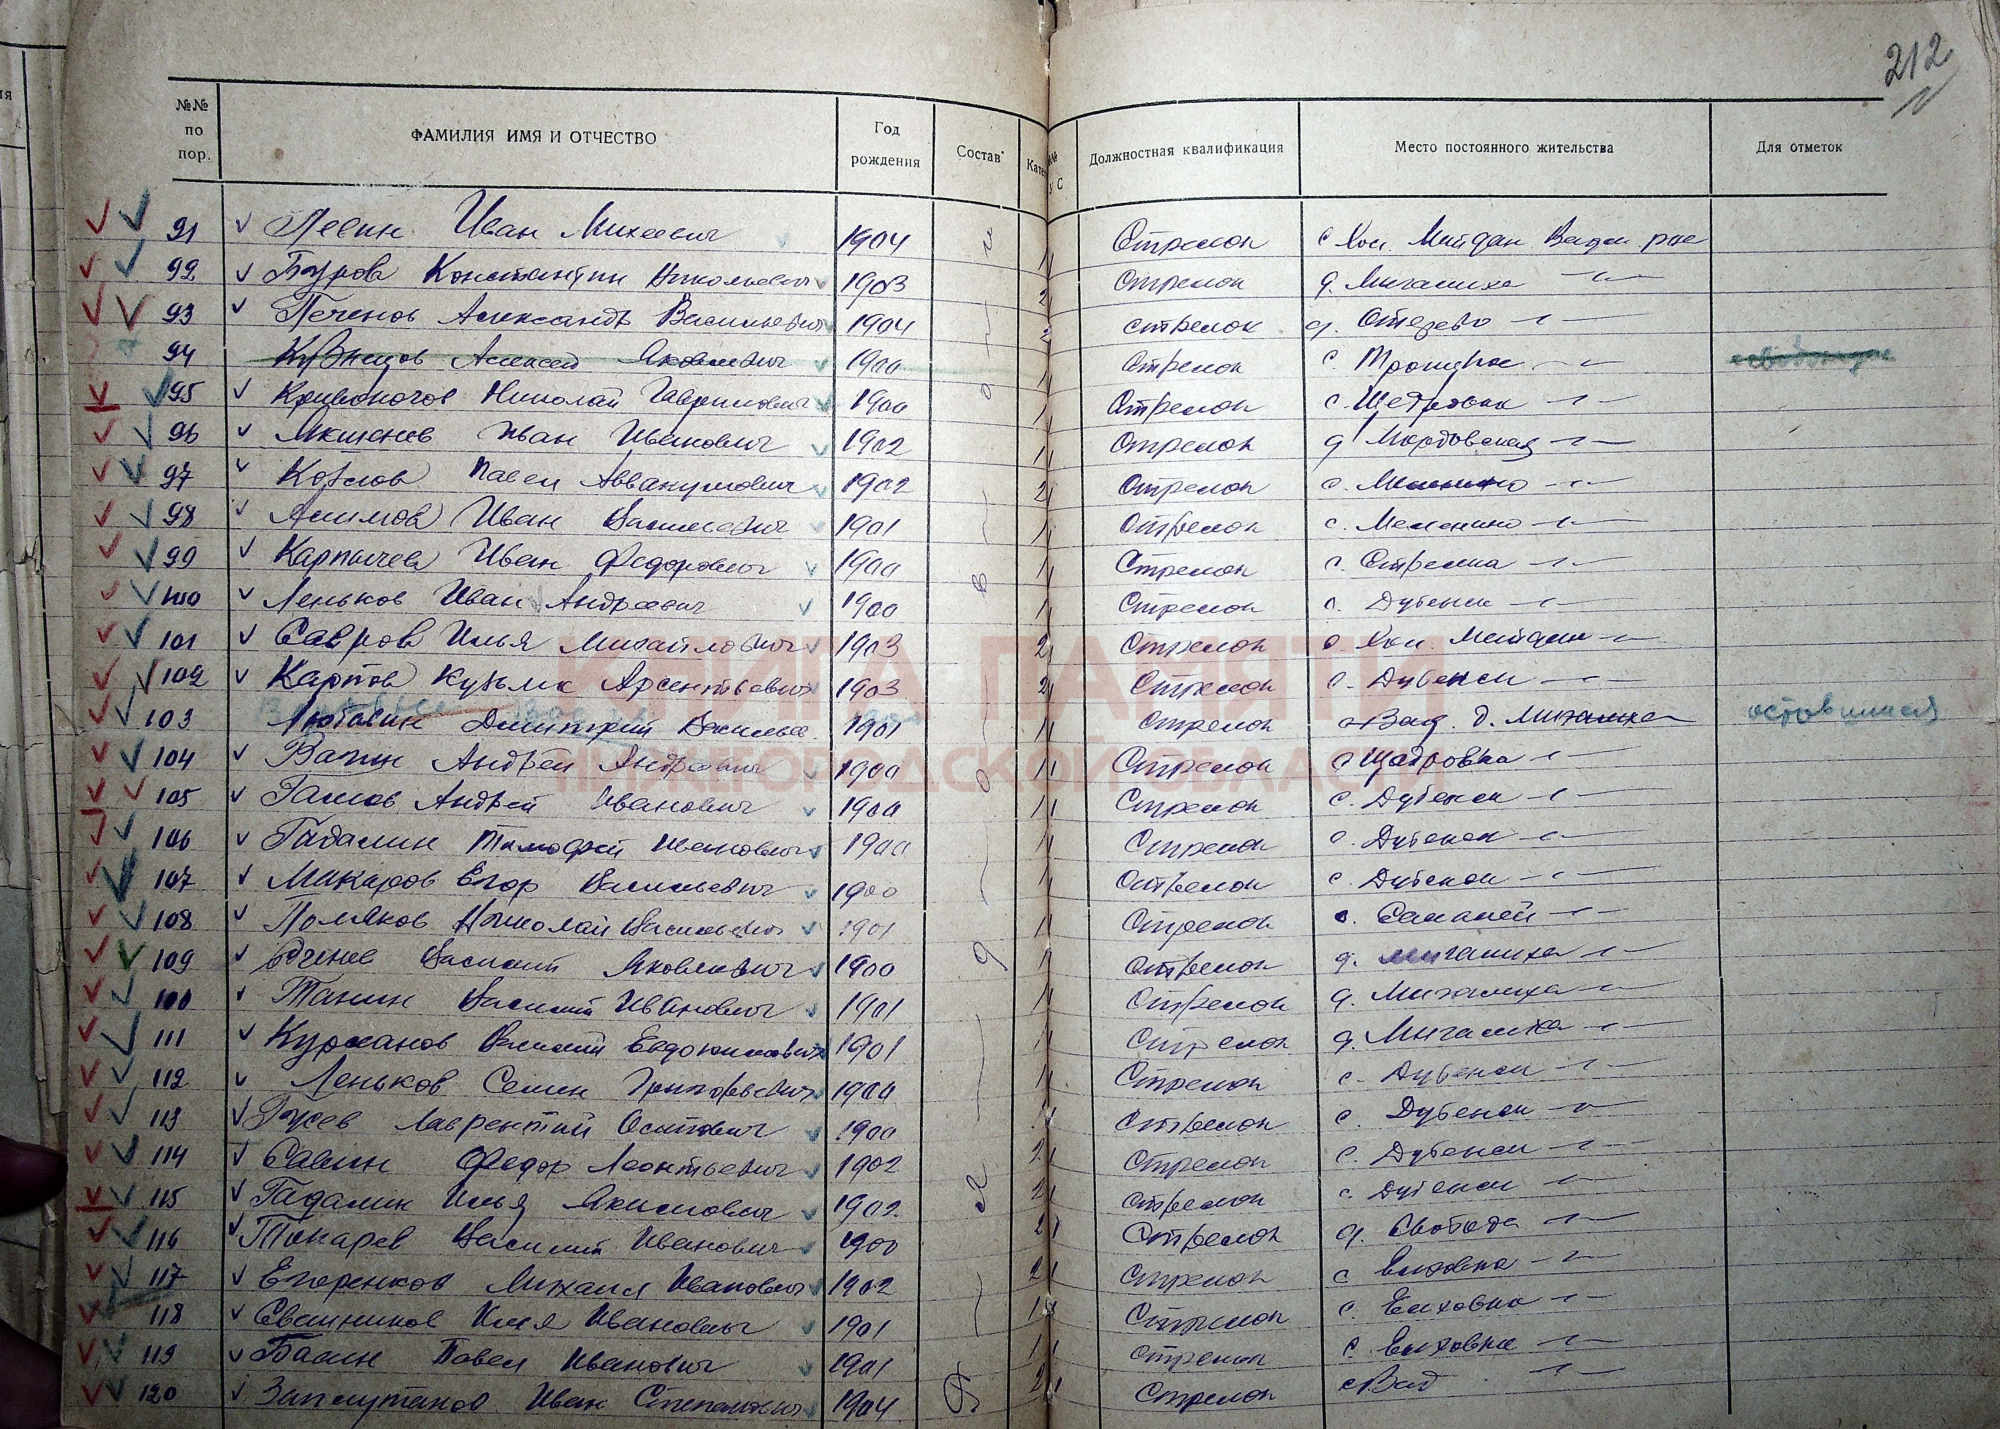 212
№№ по пор. ФАМИЛИЯ ИМЯ И ОТЧЕСТВО Год рождения Состав Должностная квалификация Место постоянного жительства Для отметок
91 Левин Иван Михеевич 1904 Стрелок с Хол. Майдан Вадск. р-на
92 Константин Николаевич 1903 2 Стрелок д. Мигалиха -"-
93 Печенов Александр Васильевич 1904 2 стрелок д. -"-
94 Кузнецов Алексей Яковлевич 1900 1 Стрелок с. -"-
95 Кривоногов Николай Гаврилович 1900 1 Стрелок с. -"-
96 Якшенев Иван Иванович 1902 1 Стрелок д Мордовская -"-
97 Козлов Павел Аввакумович 1902 2 Стрелок с. -"-
98 Асимов Иван Васильевич 1901 1 Стрелок с. -"-
99 Карпычев Иван Федорович 1900 1 Стрелок с. Стрелка -"-
100 Леньков Иван Андреевич 1900 1 Стрелок с. Дубенки -"-
101 Савров Илья Михайлович 1903 2 Стрелок с. Хол. Майдан -"-
102 Карпов Кузьма Арсентьевич 1903 2 Стрелок с. Дубенки -"-
103 Лютавин Дмитрий Василье. 1901 1 Стрелок с Вад. д. Мигалиха
104 Вагин Андрей Андреевич 1900 1 Стрелок с Щедровка -"-
105 Андрей Иванович 1900 1 Стрелок с. Дубенки -"-
106 Гадалин Тимофей Иванович 1900 1 Стрелок с. Дубенки -"-
107 Макаров Егор Васильевич 1900 1 Стрелок с. Дубенки -"-
108 Поляков Николай Васильевич 1901 1 Стрелок с. -"-
109 Василий Яковлевич 1900 1 Стрелок д. Мигалиха -"-
100 Танин Василий Иванович 1901 1 Стрелок д. Мигалиха -"-
111 Курманов Василий Евдокимович 1901 1 Стрелок д. Мигалиха -"-
112 Леньков Семен Григорьевич 1900 1 Стрелок с. Дубенки -"-
113 Гусев Лаврентий Осипович 1900 1 Стрелок с. Дубенки -"-
114 Савин Федор Леонтьевич 1902 2 Стрелок с. Дубенки -"-
115 Гадалин Илья Якимович 1902 2 Стрелок с. Дубенки -"-
116 Токарев Василий Иванович 1900 Стрелок д. Свобода -"-
117 Егоренков Михаил Иванович 1902 2 Стрелок с Елховка -"-
118 Илья Иванович 1901 1 Стрелок с. Елховка -"-
119 Павел Иванович 1901 1 Стрелок с. Елховка -"-
120 Иван Степанович 1904 2 Стрелок с Вад -"-
КНИГА ПАМЯТИ
НИЖЕГОРОДСКОЙ ОБЛАСТИ